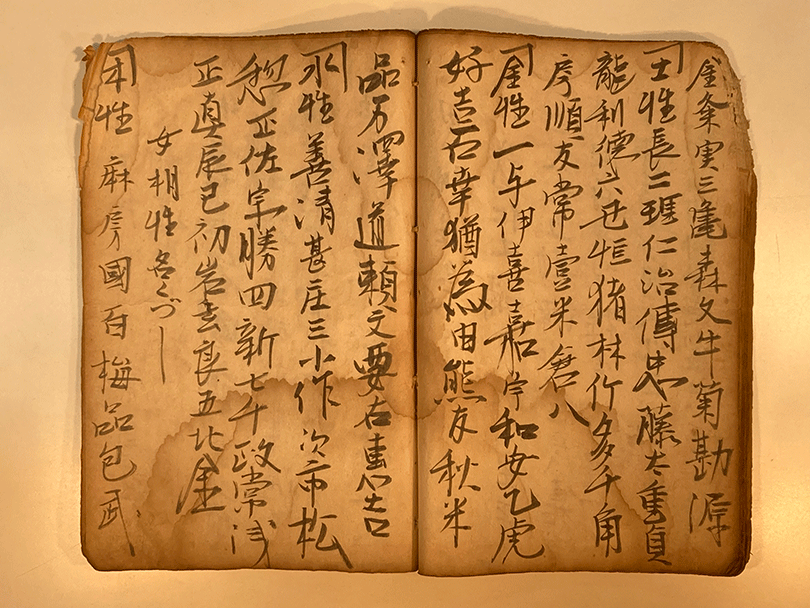 金粂実三亀森久牛菊勘源
土性長二瑪仁治傳忠藤太重貞
龍利德六世恒猪林竹多千角
房順友常壹米倉八
金性一与伊喜嘉宇和安乙虎
好吉石幸猶為由熊友秋米
品万澤道頼文要右惠吉
水性善清甚庄三小作次市松
惣正佐宗勝四新七千政常浅
正真辰巳初岩吉良五北金
女相性名くづし
木性麻房國百梅品包武